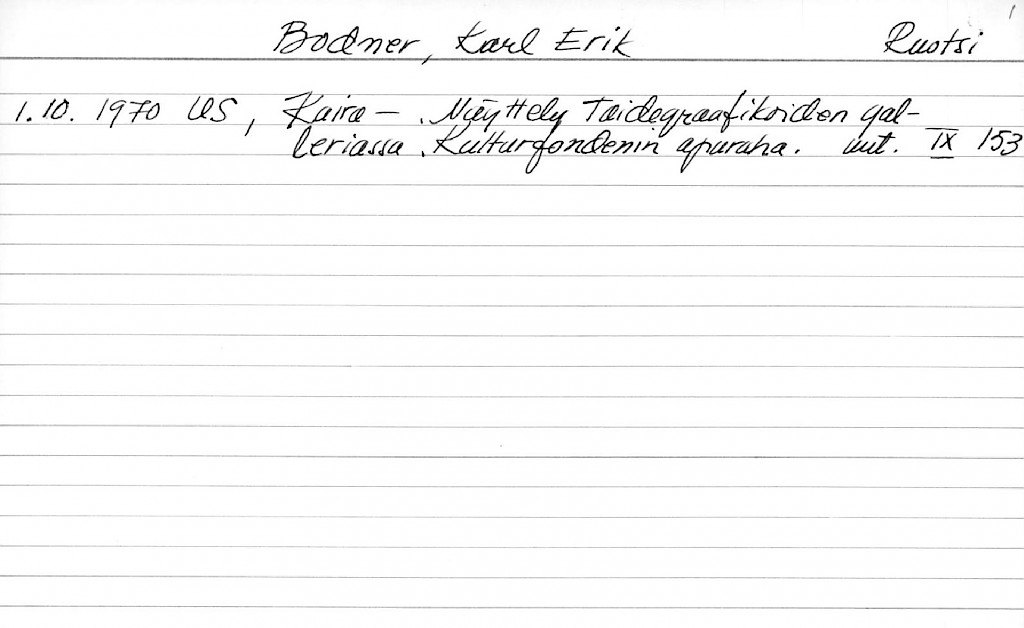 1
Bodner, Karl Erik Ruotsi
1.10. 1970 US, Kaira – . Näyttely Taidegraafikoiden gal-
leriassa . Kulturfondenin apuraha. uut. IX 153